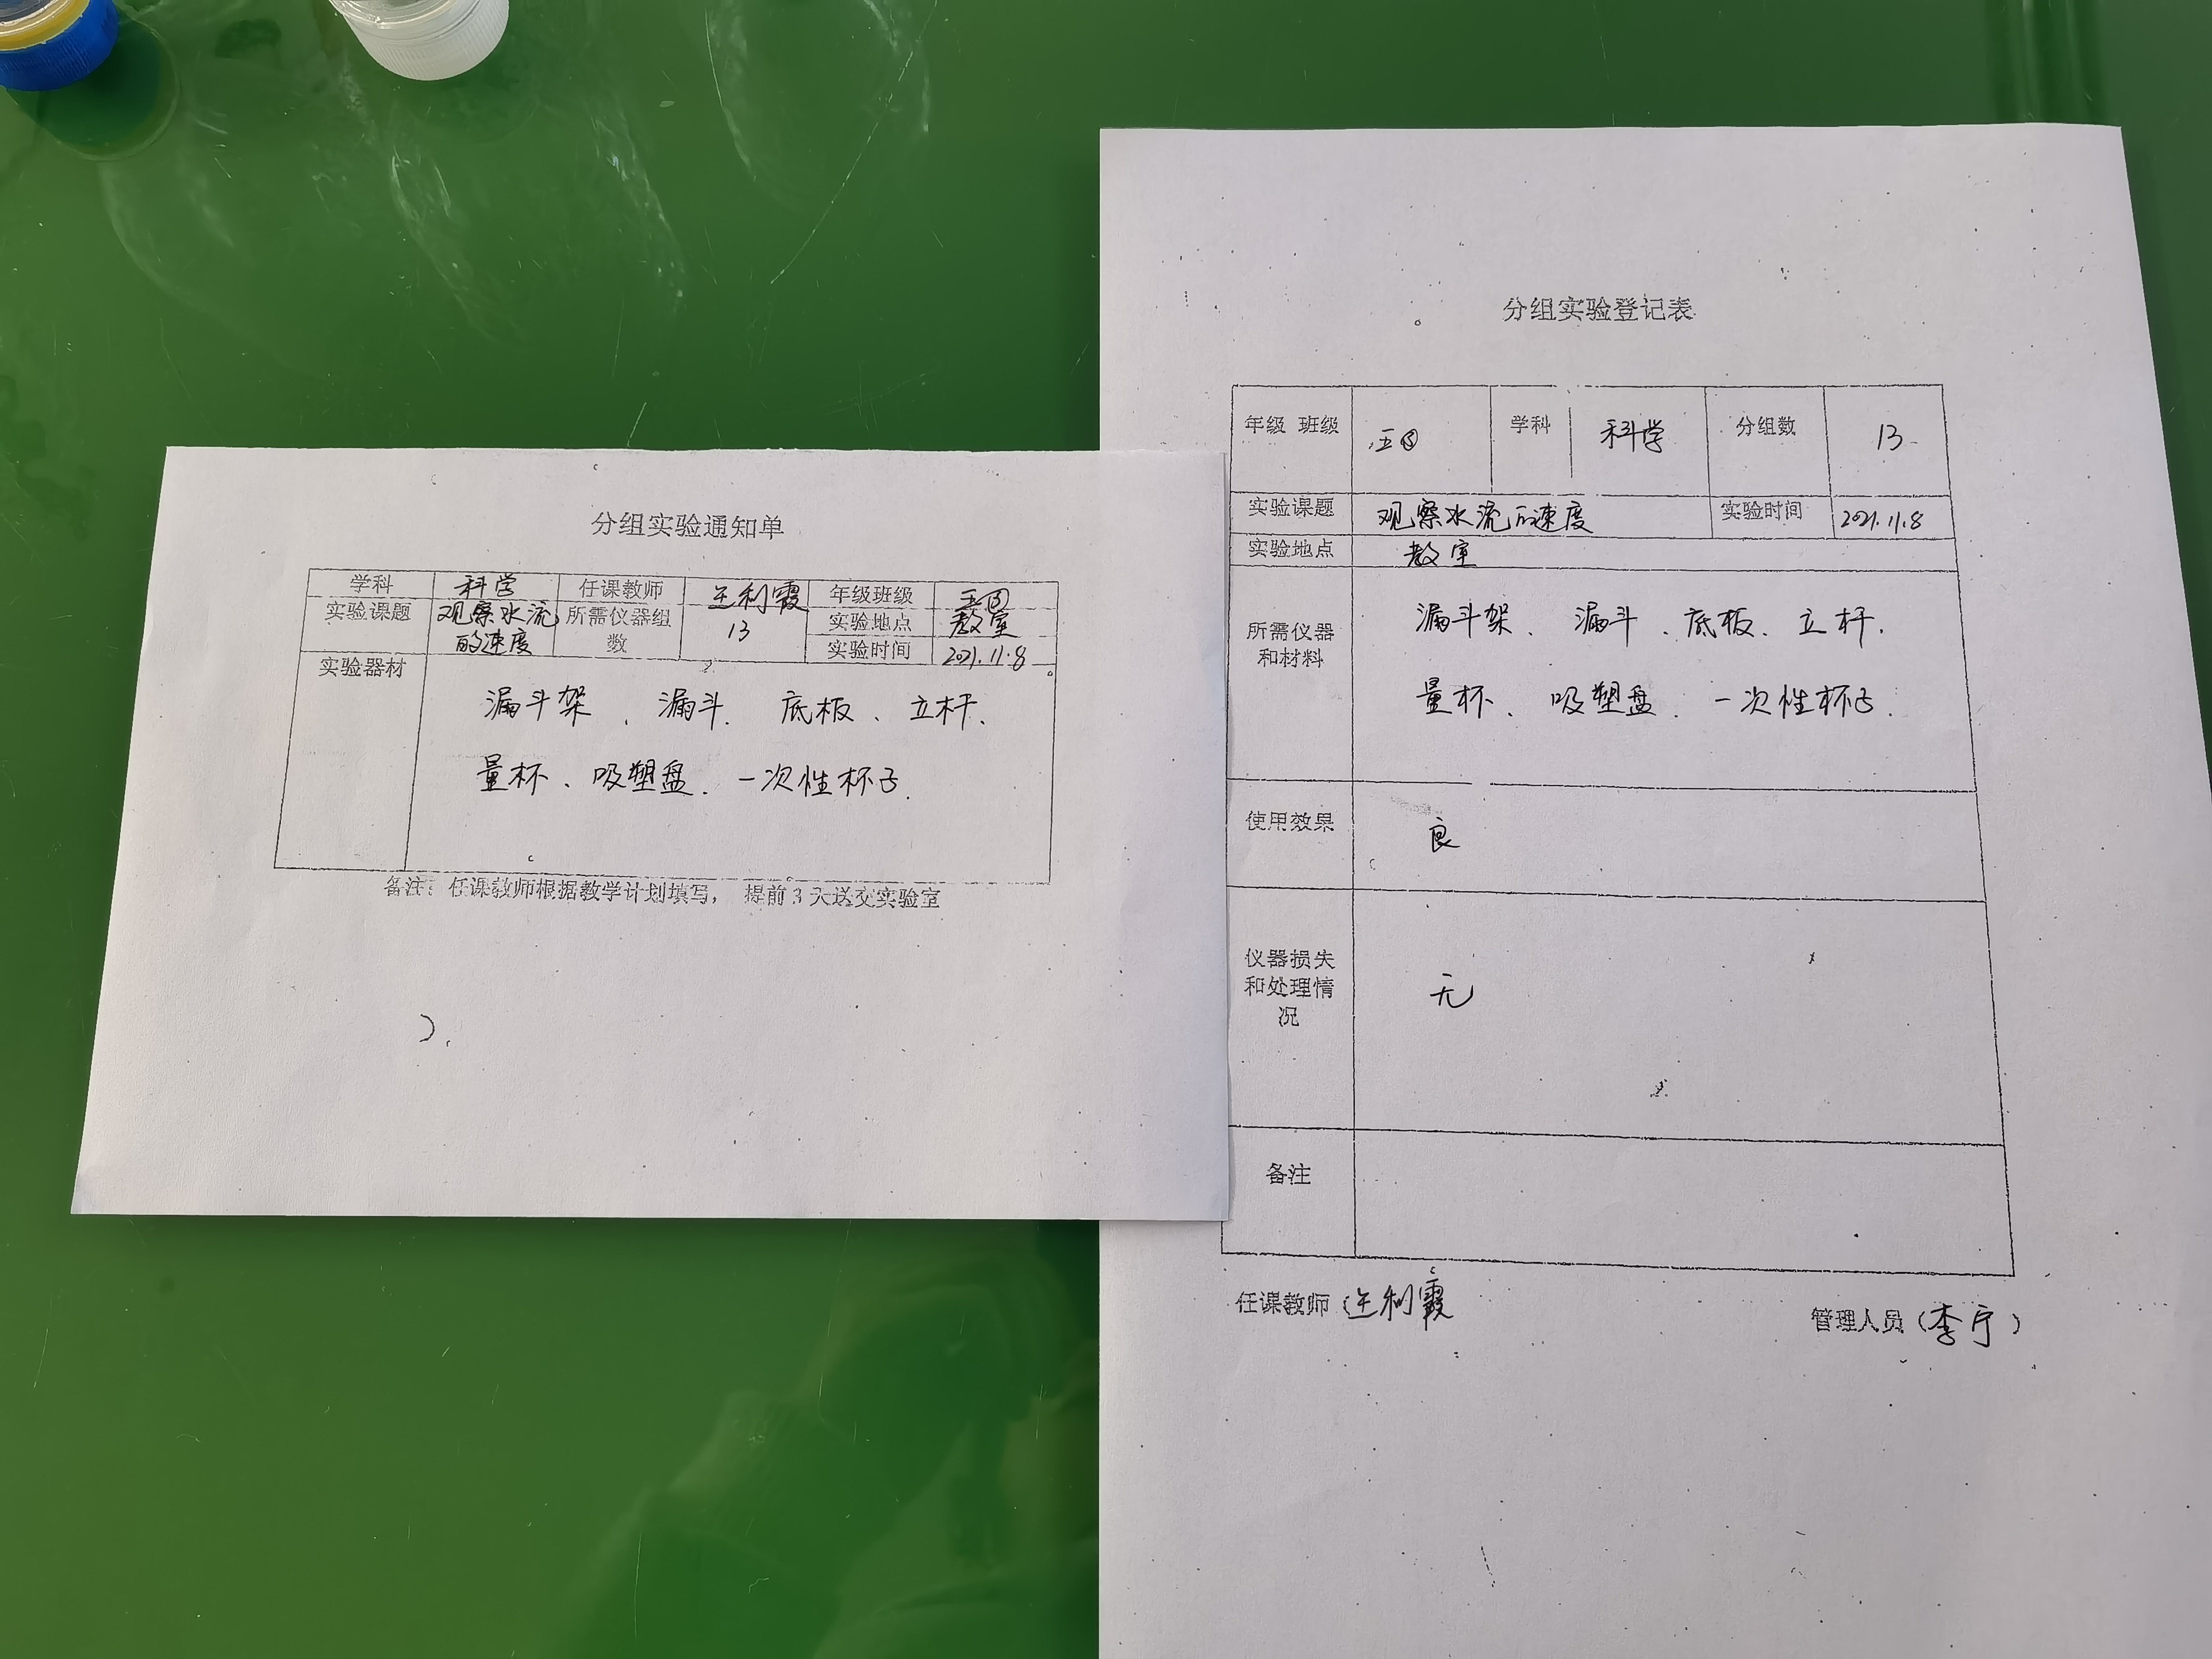 分组实验通知单
学科 科学 任课教师 利霞 年级班级 五
实验课题 观察水流的速度 所需仪器组数 13 实验地点 教室
实验时间 2021.11.8
实验器材 漏斗架、漏斗、底板、立杆、
量杯、吸塑盘、一次性杯子.
备注：任课教师根据教学计划填写， 提前3天送交实验室
分组实验登记表
年级 班级 五 学科 科学 分组数 13
实验课题 观察水流的速度 实验时间 2021.11.8
实验地点 教室
所需仪器和材料 漏斗架、漏斗、底板、立杆、
量杯、吸塑盘、一次性杯子.
使用效果 良
仪器损失和处理情况 无
备注
任课教师 利霞 管理人员（李宁）